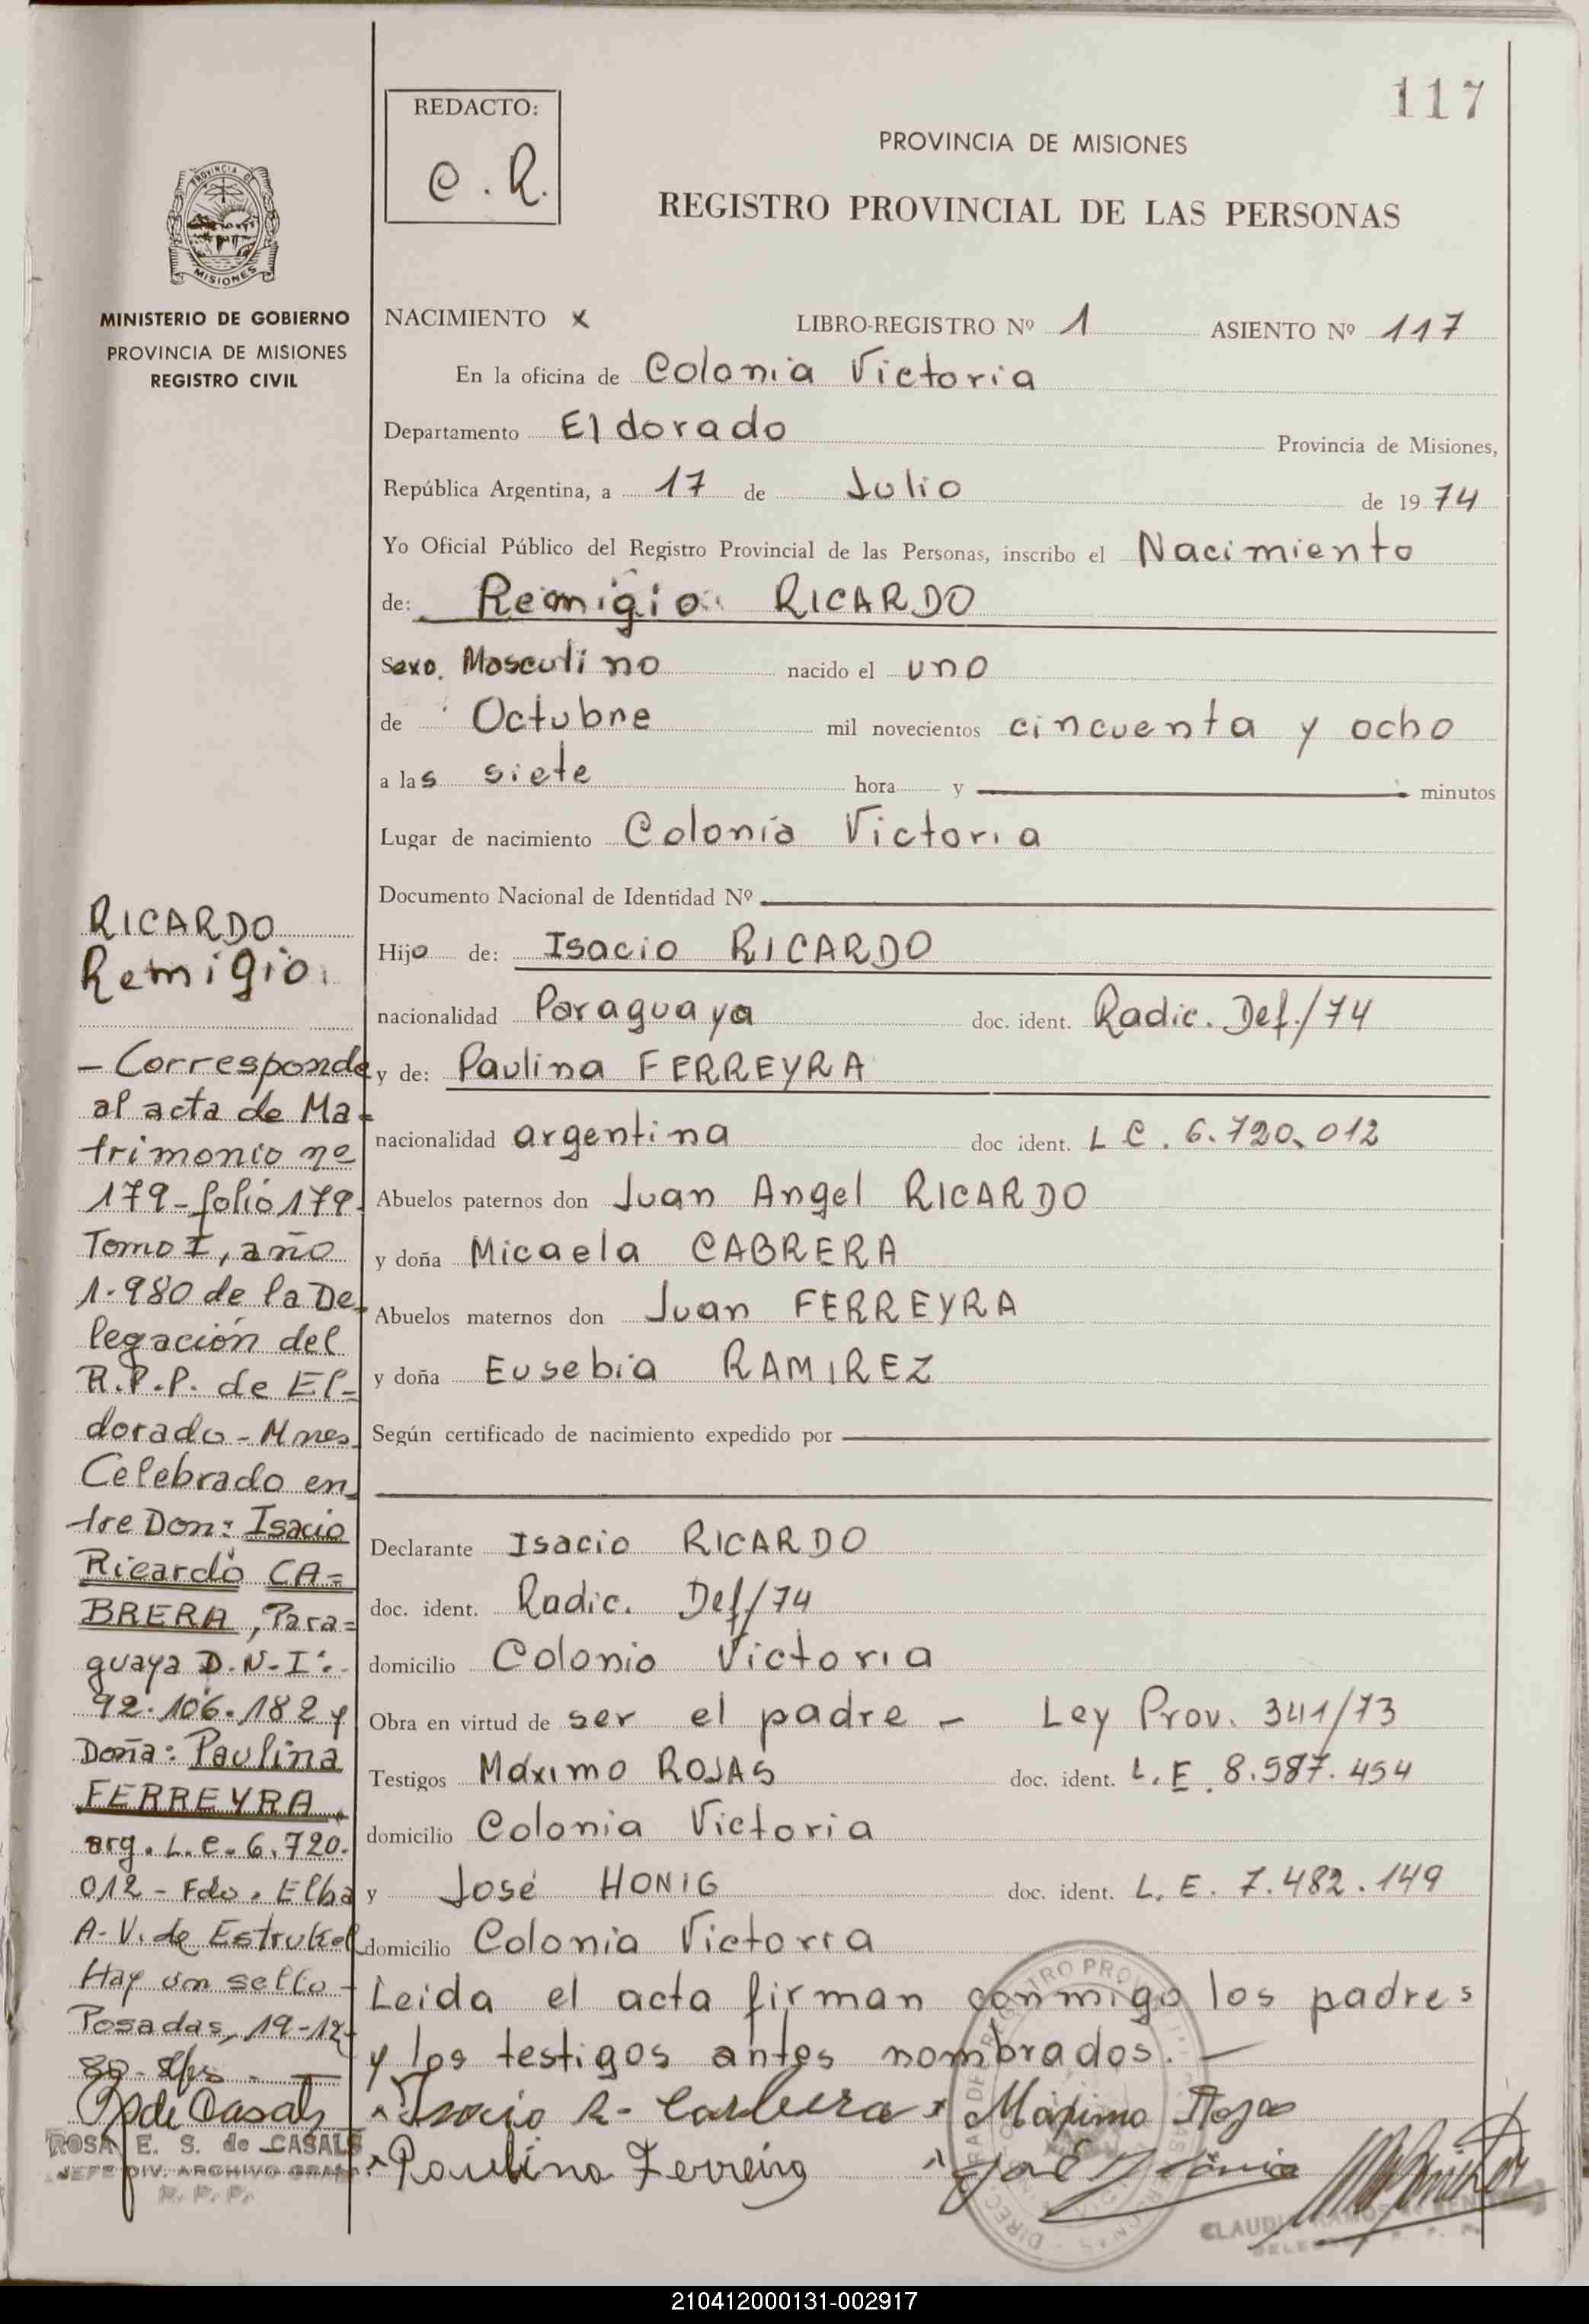 117
REDACTO:
C. R.
PROVINCIA DE MISIONES
REGISTRO PROVINCIAL DE LAS PERSONAS
PROVINCIA DE
MISIONES
MINISTERIO DE GOBIERNO
PROVINCIA DE MISIONES
REGISTRO CIVIL
NACIMIENTO x LIBRO-REGISTRO Nº 1 ASIENTO Nº 117
En la oficina de Colonia Victoria
Departamento Eldorado Provincia de Misiones,
República Argentina, a 17 de Julio de 1974
Yo Oficial Público del Registro Provincial de las Personas, inscribo el Nacimiento
de: Remigio RICARDO
Sexo. Masculino nacido el uno
de Octubre mil novecientos cincuenta y ocho
a las siete hora y minutos
Lugar de nacimiento Colonia Victoria
Documento Nacional de Identidad Nº
Hijo de: Isacio RICARDO
nacionalidad Paraguaya doc. ident. Radic. Def./74
y de: Paulina FERREYRA
nacionalidad argentina doc ident. L C. 6.720.012
Abuelos paternos don Juan Angel RICARDO
y doña Micaela CABRERA
Abuelos maternos don Juan FERREYRA
y doña Eusebia RAMIREZ
Según certificado de nacimiento expedido por
Declarante Isacio RICARDO
doc. ident. Radic. Def/74
domicilio Colonia Victoria
Obra en virtud de ser el padre - Ley Prov. 341/73
Testigos Máximo ROJAS doc. ident. L.E. 8.587.454
domicilio Colonia Victoria
y José HONIG doc. ident. L.E. 7.482.149
domicilio Colonia Victoria
Leida el acta firman conmigo los padres
y los testigos antes nombrados. -
Isacio R- Cabrera Máximo Rojas
Paulina Ferreira José
RICARDO
Remigio.
- Corresponde
al acta de Ma-
trimonio nº
179-folio 179.
Tomo I, año
1.980 de la De-
legación del
R.P.P. de El-
dorado - Mnes.
Celebrado en-
tre Don: Isacio
Ricardo CA-
BRERA, Para-
guaya D.N.I:
92.106.182 y
Doña: Paulina
FERREYRA,
arg. L.C. 6.720.
012 - Fdo. Elba
A. V. de Estrukel
Hay un sello -
Posadas, 19-12-
80-
R de Casals
ROSA E. S. de CASALS
JEFE DIV. ARCHIVO GRAL.
R. P. P.
210412000131-002917